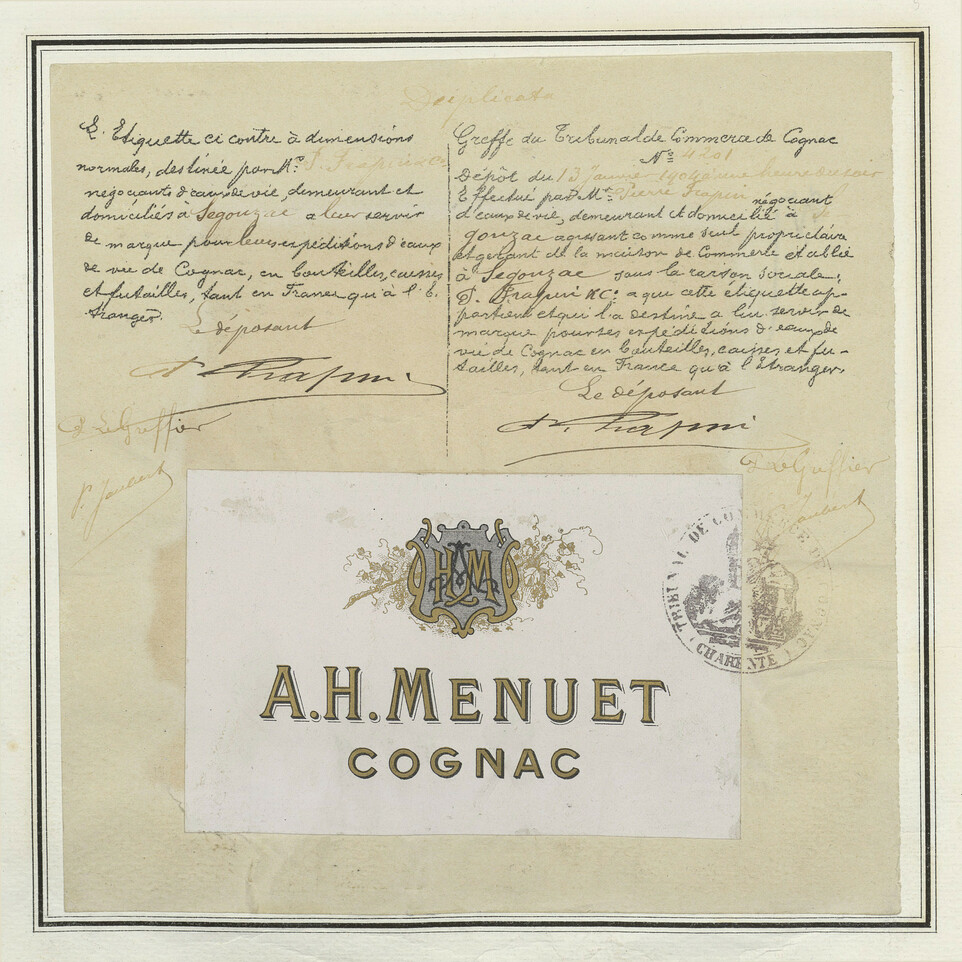 Duplicata
L'Etiquette ci contre à dimensions
normales, destinée par Mr. P. Frapin & Co
négociants d'eaux de vie, demeurant et
domiciliés à Segonzac a leur servir
de marque pour leurs expéditions d'eaux
de vie de Cognac, en bouteilles, caisses
et futailles, tant en France qu'à l'E
tranger.
Le déposant
P. Frapin
P. Le Greffier
P. Jaubert
Greffe du Tribunal de Commerce de Cognac
No. 4201
Dépôt du 13 Janvier 1904 à une heure du soir
Effectué par Mr. Pierre Frapin négociant
d'eaux de vie, demeurant et domicilié à Se
gonzac agissant comme seul propriétaire
et gérant de la maison de Commerce établie
à Segonzac sous la raison sociale:
P. Frapin & Co. a qui cette étiquette ap-
partient et qui l'a destine a lui servir de
marque pour ses expéditions d'eaux de
vie de Cognac en bouteilles, caisses et fu-
tailles, tant en France qu'à l'Etranger.
Le déposant
P. Frapin
P. Le Greffier
Jaubert
TRIBUNAL DE COMMERCE DE COGNAC
(CHARENTE)
HAM
A.H. MENUET
COGNAC